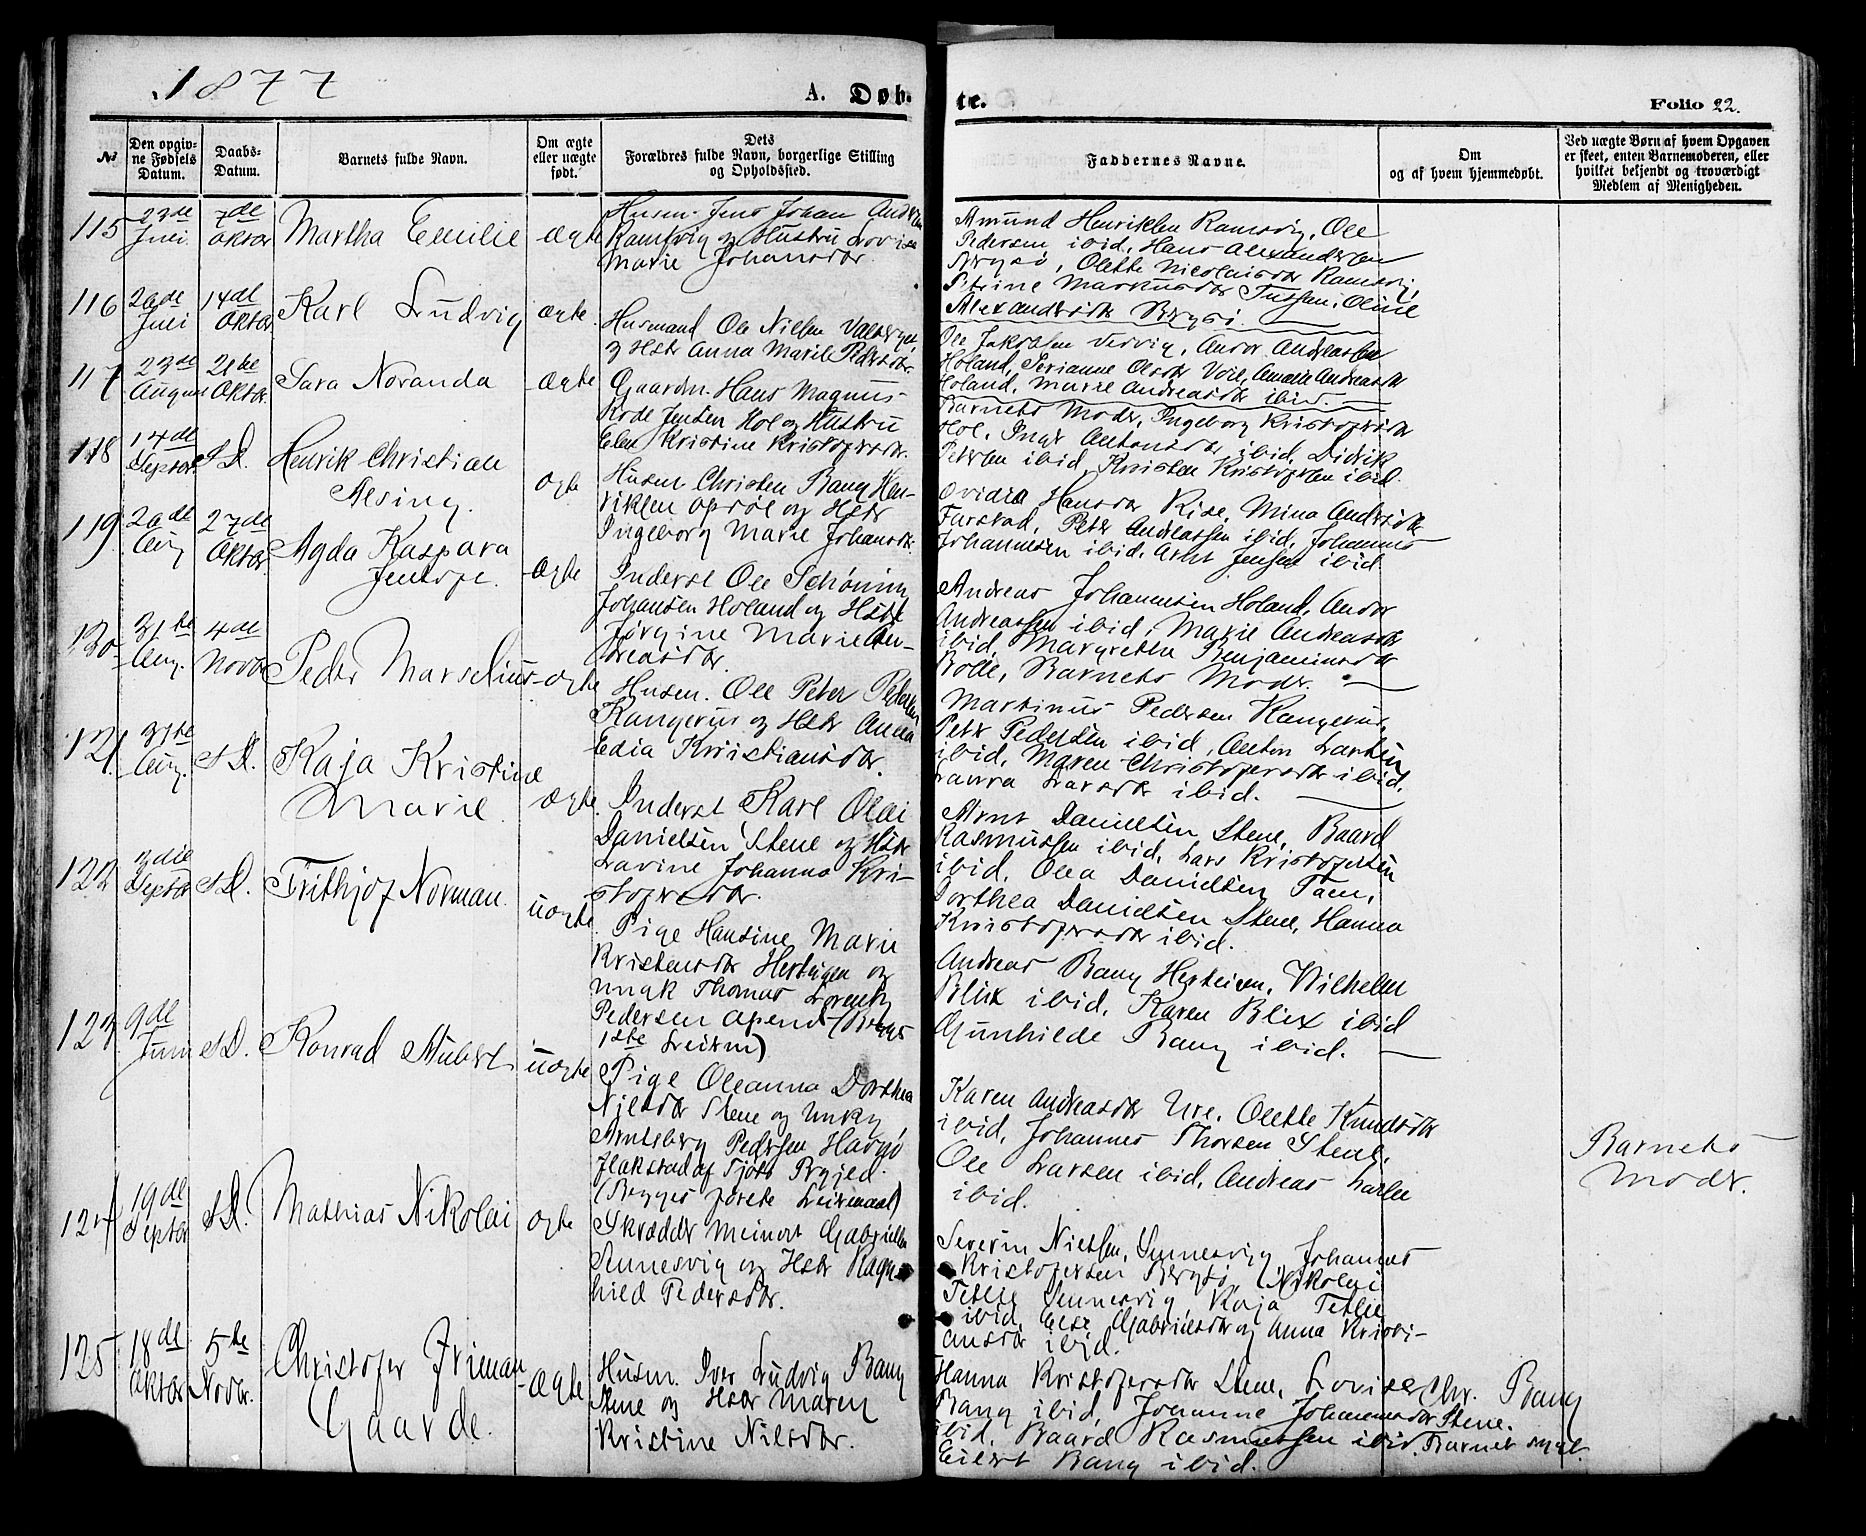 1877
A. Døb-
te.
Folio 22.
№
Den opgiv-
ne Fødsels
Datum.
Daabs-
Datum.
Barnets fulde Navn.
Om ægte
eller uægte
født.
Dets
Forældres fulde Navn, borgerlige Stilling
og Opholdssted.
Faddernes Navne.
Om
og af hvem hjemmedøbt.
Ved uægte Børn af hvem Opgaven
er skeet, enten Barnemoderen, eller
hvilket bekjendt og troværdigt
Medlem af Menigheden.
115
23de
Juli
7de
Oktbr
Martha Emilie
ægte
Husm. Jens Johan
Ramsvig og Hustru Lovise
Marie Johansdr.
Amund Henriksen Ramsvig, Ole
Pedersen ibid, Hans Alexandersen
Bergsø, Olette Nicolaisdr Ramsvig,
Petrine Markusdr Tussen, Oline
Alexandersdr Bergsø.
116
26de
Juli
14de
Oktbr
Karl Ludvig
ægte.
Husmand Ole Nilsen
og Hstr Anna Marie Pedersdr.
Ole Jakobsen Vervig, Andor Andreassen
Holand, Serianne Olsdr Voie, Amalie Andreasdr
Holand, Marie Andreasdr ibid.
117
23de
August
21de
Oktbr
Sara Noranda
ægte
Gaardm. Hans Magnus
Rode Jensen Hol og Hustru
Elen Kristine Kristofersdr.
Barnets Moder, Ingeborg Kristofersdr
Hol, Inger Antonsdr ibid, Didrik
Petersen ibid, Kristen Kristofersen ibid.
118
14de
Septbr
S.D.
Henrik Christian
Alsing.
ægte
Husm Christen Bang Hen-
riksen Opsøl og Hstr
Ingeborg Marie Johansdr.
Hansdr Rise, Mina Andersdr
Farstad, Peter Andreassen ibid, Johannes
Johannesen ibid, Arnt Jensen ibid
119
20de
Aug
27de
Oktbr.
Agda Kaspara
Jentofe.
ægte
Inderst Ole Schøning
Johansen Holand og Hstr
Jørgine Marie An-
dreasdr.
Andreas Johannesen Holand, Andor
Andreassen ibid, Marie Andreasdr
ibid, Margrethe Benjaminsdr
Bolle, Barnets Moder.
120
31te
Aug.
4de
Novbr
Peder Marselius
ægte
Husm. Ole Peter Pedersen
Kangerur og Hstr Anna
Edia Kristiansdr.
Martinus Pedersen Kangerur,
Peter Pedersen ibid, Anton Larsen
ibid, Maren Christofersdr ibid,
Laura Larsdr ibid.
121.
31te
Aug.
S.D.
Kaja Kristine
Marie
ægte.
Inderst Karl Olai
Danielsen Stene og Hstr
Lavine Johanna Kri-
stofersdr.
Arnt Danielsen Stene, Baard
Rasmussen ibid, Lars Kristofersen
ibid, Olea Danielsen Faen,
Dorthea Danielsen Stene, Hanna
Kristofersdr ibid.
122
3die
Septbr
S.D.
Frithjof Norman.
uægte
Pige Hansine Marie
Kristensdr Herteigen og
ungk Thomas Lorentz
Pedersen Opend (Begges
1ste Leierm)
Andreas Bang Herteigen, Wilhelm
Blix ibid, Karen Blix ibid
Gunhilde Bang ibid.
123
9de
Juni
S.D.
Konrad Aubert
uægte
Pige Oleanna Dorthea
Nilsdr Stene og Ungk
Arntsberg Pedersen Havsø
Flakstad af Tjøtø Prgjed.
(Begges første Leiermaal)
Karen Andreasdr Ure, Olette Knudsdr
ibid, Johannes Thorsen Stene,
Ole Larsen ibid, Andreas Larsen
ibid.
Barnets
Moder.
124
19de
Septbr
S.D.
Mathias Nikolai
ægte
Skrædder Meinort Gabrielsen
Sennesvig og Hstr Ragn-
hild Pedersdr.
Severin Nielsen, Sennesvig, Johannes
Kristofersen Bergsø, Nikolai
Tetlie Sennesvig, Kaja Tetlie
ibid, Else Gabrielsdr og Anna Kristi-
ansdr ibid.
125
18de
Oktbr
5te
Novbr.
Christofer Friman
Gaarde.
ægte
Husm. Iver Ludvig Bang
Stene og Hstr Maren
Kristine Nilsdr.
Hanna Kristofersdr Stene, Lovise
Bang ibid, Johanne Johannesdr
ibid, Baard Rasmussen ibid,
Eilert Bang ibid.
Chr. Bang
Stene.
Barnet